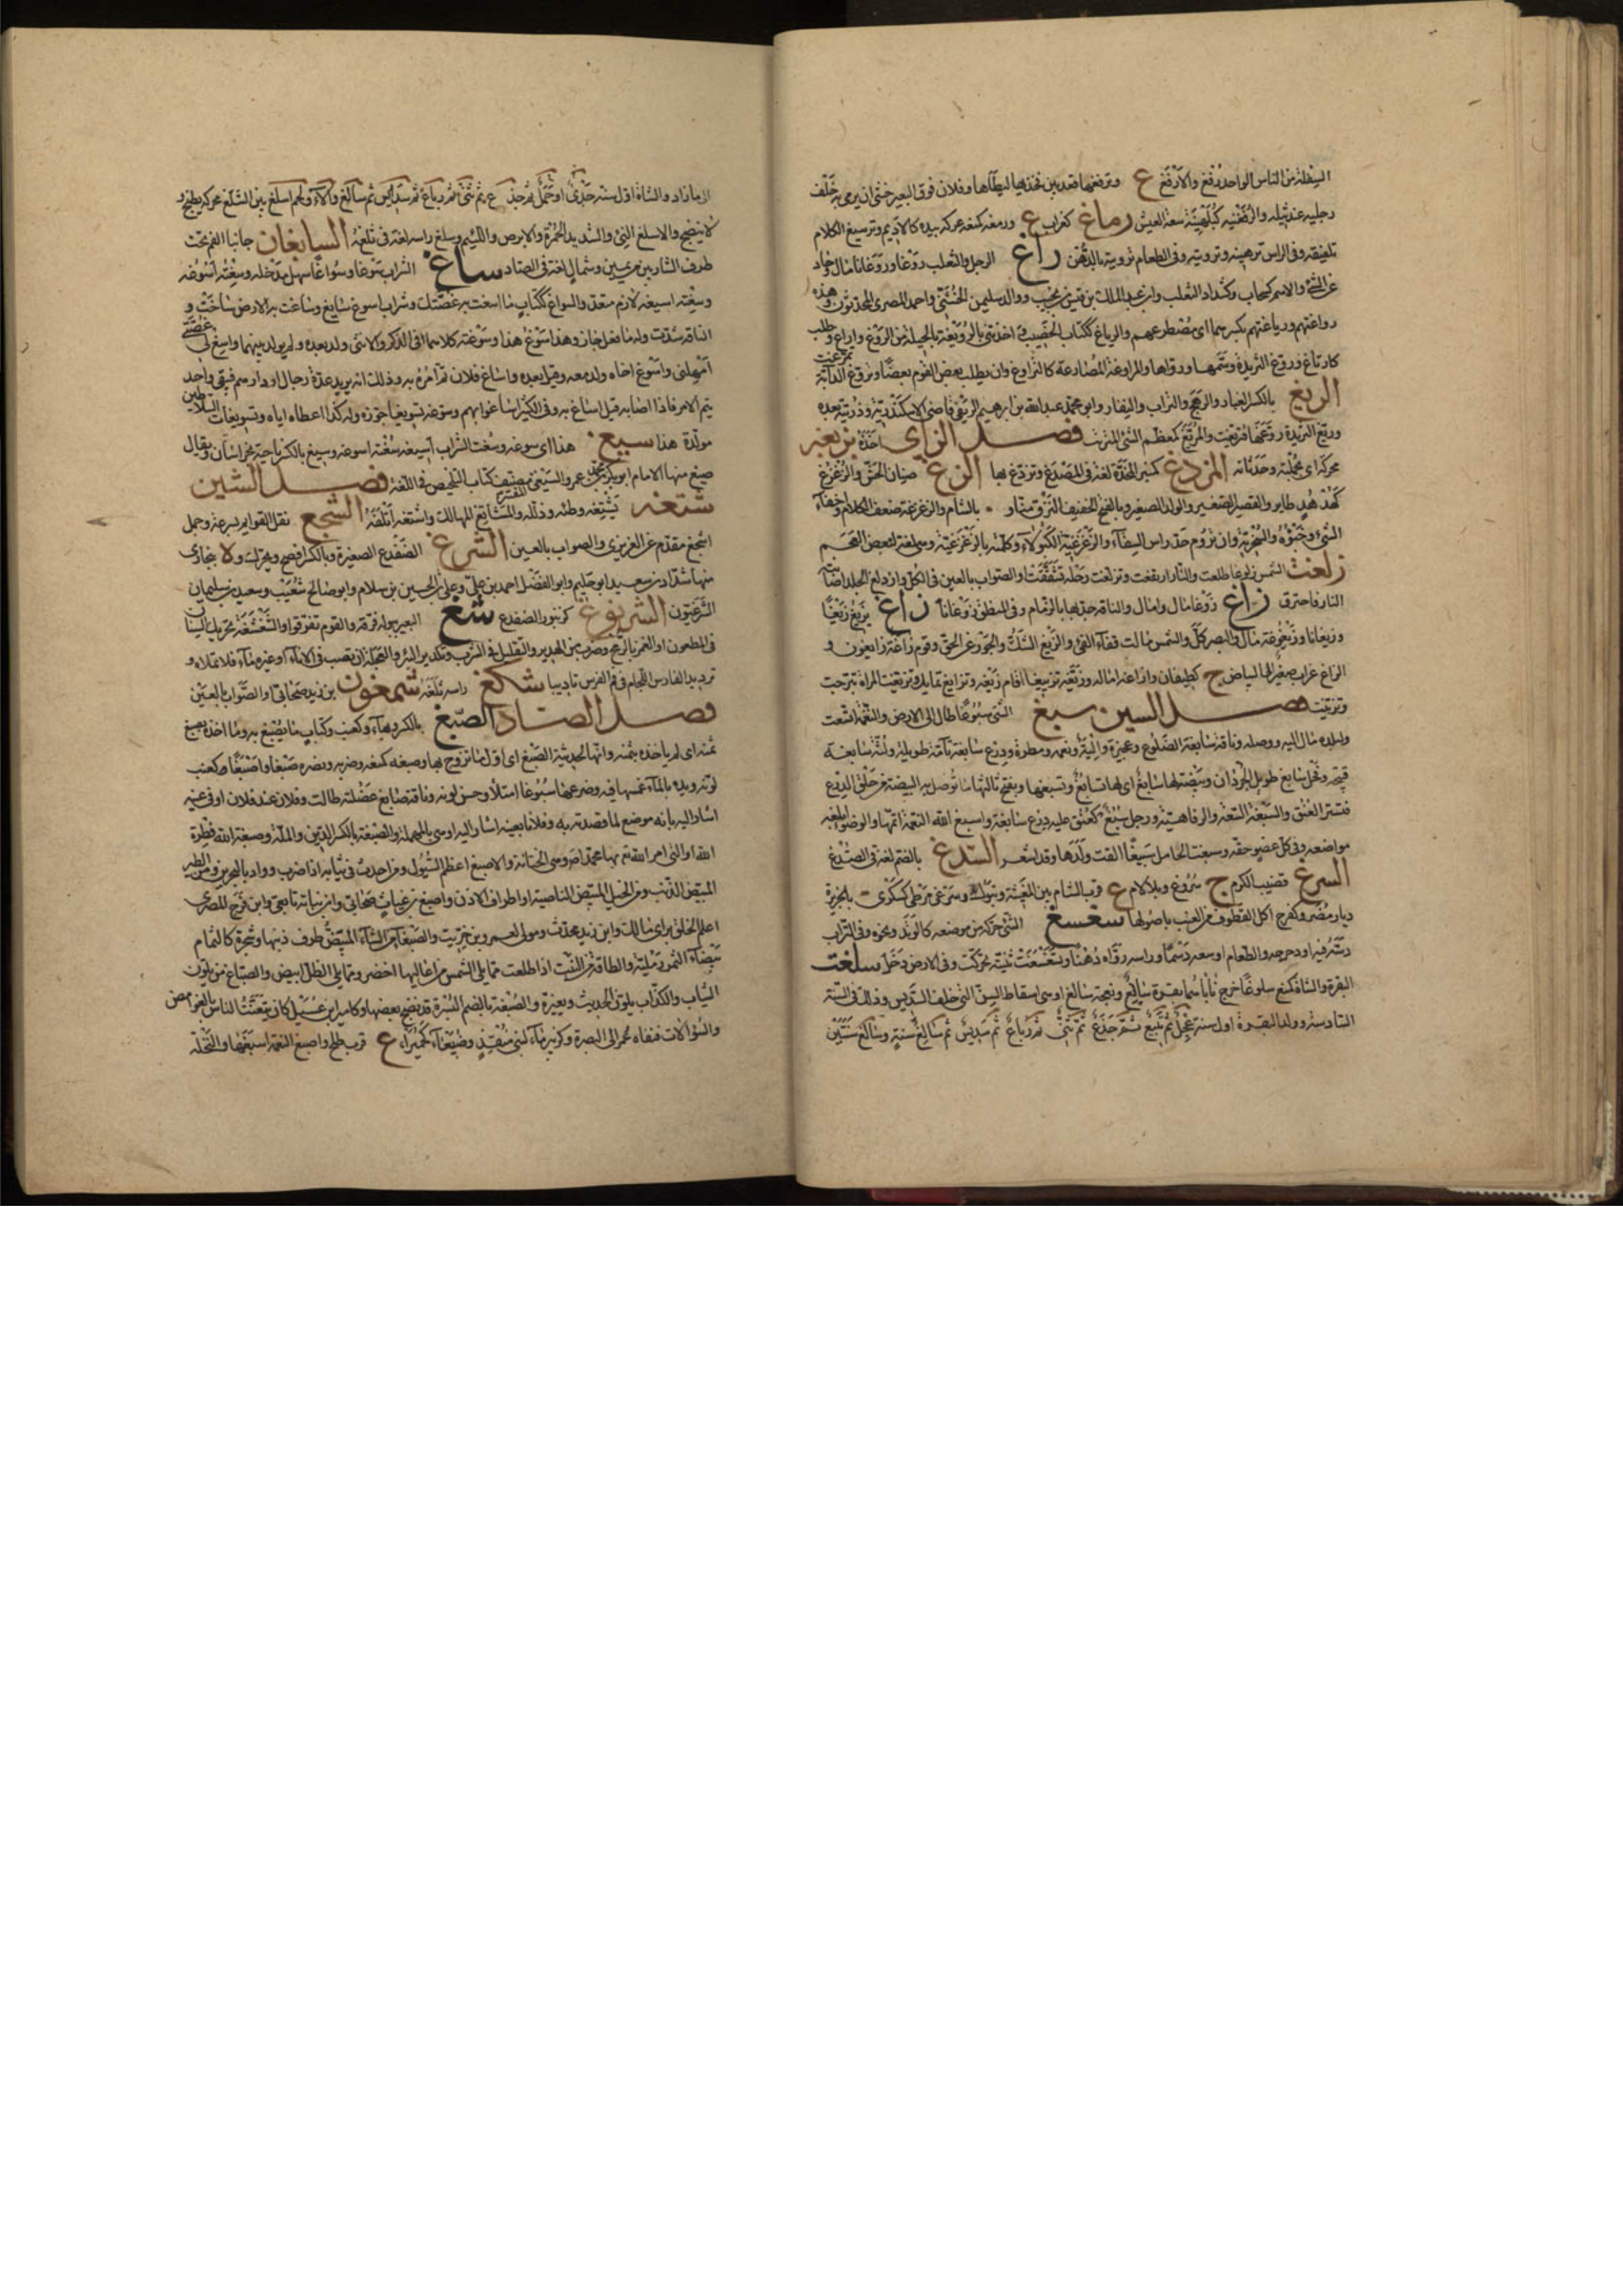 السفلة من الناس الواحد رفغ والارفغ ع وترفغها قعد بين فخذيها ليطأها وفلان فوق البعير خشي ان يرمي به خلف
رجليه عند ثيله والرفغنية كبلهنية سعة العيش رماغ كغراب ع ورمغه كمنعه عركه بيده كالاديم وترميغ الكلام
تلفيقه وفي الراس ترهينه وترويته وفي الطعام ترويته بالدهن راغ الرجل والثعلب روغا وروغانا مال وحاد
عن الشئ والاسم كسحاب وكشداد الثعلب وابن عبد الملك بن قيس من تجيب ووالد سليمن الخشني واحمد المصري المحدثون وهذه
رواغتهم ورياغتهم بكسرهما اي مضطرعهم والرياغ ككتاب الخصيب واخذتني بالرويغة بالحيلة من الروغ واراغ وطلب
كارتاغ وروغ الثريدة دسمها ورواها والمراوغة المصارعة كالتراوغ وان يطلب بعض القوم بعضا وتروغ الدابة تمرغت
الريغ بالكسر الغبار والرهج والتراب والنفار وابو محمد عبد الله بن ابرهيم الريغي قاضي الاسكندرية وذريته بعده
وريغ الثريدة روغها فتريغت والمريغ كمعظم الشئ المترب فصل الزاي اخذه بزبغه
محركة اي بجملته وحدثانه المزدغ كمنبر المخدة لغة في المصدغ وتزدغ بها الزغ صنان الحبش والزغزغ
كهدهد طاير والقصير الصغير والولد الصغير وبالفتح الخفيف النزق منا و ع بالشام والزغزغة ضعف الكلام واخفاء
الشئ وخبؤه والسخرية وان تروم حل راس السقاء والزغزغية الكبولاء وكلمته بالزغزغية وهي لغة لبعض العجم
زلغت الشمس زلوغا طلعت والنار ارتفعت وتزلغت رجله تشققت او الصواب بالعين في الكل وازدلغ الجلد اصابته
النار فاحترق زاغ زوغا مال وامال والناقة جذبها بالزمام وفي المنطق زوغانا زاغ يزيغ زيغا
وزيغانا وزيغوغة مال والبصر كل والشمس مالت ففاء الفئ والزيغ الشك والجور عن الحق وقوم زاغة زايغون و
الزاغ غراب صغير الى البياض ج كطيقان وازاغه اماله وزيغه تزييغا اقام زيغه وتزايغ تمايل وتزيغت المراة تبرجت
وتزينت فصل السين سبغ الشئ سبوغا طال الى الارض والنعمة اتسعت
ولبلده مال اليه ووصله وناقة سابغة الضلوع وعجيزة والية ونعمة ومطرة ودرع سابغة تامة طويلة ولثة سابغة
قبيحة وفحل سابغ طويل الجردان وبيضة لها سابغ اي لها تسابغ وتسبغها وبفتح ثالثها ما توصل به البيضة من حلق الدرع
فتستر العنق والسبغة السعة والرفاهية ورجل سبغ كعنق عليه درع سابغة واسبغ الله النعمة اتمها والوضوء ابلغه
مواضعه ووفى كل عضو حقه وسبغت الحامل تسبيغا القت ولدها وقد اشعر السدغ بالضم لغة في الصدغ
السرغ قضيب الكرم ج سروغ وبلا لام ع قرب الشام بين المغيثة وتبوك وسرغى مرطى كسكرى بالجزيرة
ديار مضر وكفرح اكل القطوف من العنب باصولها سغسغ الشئ حركه من موضعه كالوتد ونحوه وفي التراب
دسه فيه او دحرجه والطعام اوسعه دسما وراسه رواه دهنا وتسغسغت ثنيته تحركت وفي الارض دخل سلغت
البقرة والشاة كمنع سلوغا خرج نابا سما بقرة سالغ ونعجة سالغ او هي اسقاط السن التي خلف السديس وذلك في السنة
السادسة وولد البقرة اول سنة عجل ثم تبيع ثم جذع ثم ثني ثم رباع ثم سديس ثم سالغ سنة وسالغ سنتين
الى ما زاد والشاة اول سنة حمل او جدي ثم جذع ثم ثني ثم رباع ثم سديس ثم سالغ ولحم اسلغ بين السلغ محركة يطبخ و
لا ينضج والاسلغ النئ والشديد الحمرة والابرص واللئيم وسلغ راسه لغة في ثلغه السابغان جانبا الفم تحت
طرف الشاربين من يمين وشمال لغة في الصاد ساغ الشراب سوغا وسواغا سهل مدخله وسغته اسوغه
وسغته اسيغه لازم متعد والسواغ ككتاب ما اسغت به غصتك وشراب اسوغ سايغ وساغت به الارض ساخت و
الناقة شذت وله ما فعل جاز وهذا سوغ هذا وسوغته كلاهما في الذكر والانثى ولد بعده ولم يولد بينهما واسغ لي غصتي
امهلني واسوغ اخاه ولد معه وقيل بعده واساغ فلان تم امره به وذلك انه يريد عدة رجال او دراهم فيبقى واحد
يتم الامر فاذا اصابه قيل اساغ به وفي الكثير اساغوا بهم وسوغه تسويغا جوزه وله كذا اعطاه اياه وتسويغات السلاطين
مولدة هذا سيغ هذا اي سوغه وسغت الشراب اسيغه سغته اسوغه وسيغ بالكسر ناحية بخراسان ويقال
صيغ منها الامام ابو بكر محمد بن عمرو السيغي مصنف كتاب التلخيص في اللغة فصل الشين
شتغه يشتغه وطئه وذلله والمشاتغ المهالك واشتغه اتلفه الشجغ نقل القوايم بسرعة وجمل
اشجغ مقدم عن العزيزي والصواب بالعين الشرغ الضفدع الصغيرة وبالكسر افصح ويحرك و ة ببخارى
منها شداد بن سعيد ابو حكيم وابو الفضل احمد بن علي وعلي بن الحسين بن سلام وابو صالح شعيب وسعيد بن سليمان
الشرغيون الشريوغ كزنبور الضفدع شغ البعير ببوله فرقه والقوم تفرقوا والشغشغة تحريك السنان
في المطعون او الغمز بالرمح وضرب من الهدير والتقليل في الشرب وتكدير البئر والعجلة ان يصب في الاناء او غيره ماء فلا تملاه و
ترديد الفارس اللجام في فم الفرس تاديبا شلغ راسه ثلغه شمغون بن زيد صحابي او الصواب بالعين
فصل الصاد الصبغ بالكسر وبهاء وكعنب وكتاب ما يصبغ به وما اخذه بصبغ
ثمنه اي لم ياخذه بثمنه وانها لحديثة الصبغ اي اول ما تزوج بها وصبغه كمنعه وضربه ونصره صبغا وصبغا كعنب
لونه ويده بالماء غمسها فيه وضرعها صبوغا امتلأ وحسن لونه وناقة صابغ وعضلته طالت وفلان عند فلان او في عينه
اشار اليه بانه موضع لما قصدته به وفلانا بعينه اشار اليه او هي بالمهملة والصبغة بالكسر الدين والملة وصبغة الله فطرة
الله او التي امر الله تع بها محمدا صم وهي الختانة والاصبغ اعظم السيول ومن احدث في ثيابه اذا ضرب وواد بالبحرين ومن الطير
المبيض الذنب ومن الخيل المبيض الناصية او اطراف الاذن واصبغ بن غياث صحابي وابن نباتة تابعي وابن فرج المصري
اعلم الخلق براي مالك وابن زيد محدث ومولى لعمرو بن حريث والصبغاء من الشاء المبيض طرف ذنبها وشجرة كالثمام
بيضاء الثمر رملية والطاقة من النبت اذا طلعت مما يلي الشمس من اعاليها اخضر ومما يلي الظل ابيض والصباغ من يلون
الثياب والكذاب يلون الحديث ويغيره والصبغة بالضم البسرة قد نضج بعضها وكامير ابن عسيل كان يعنت الناس بالغوامض
والسؤالات فنفاه عمر الى البصرة وكزبير ماء لبني منقذ وصبيغاء كحميراء ع قرب طلح واصبغ النعمة اسبغها والنخلة